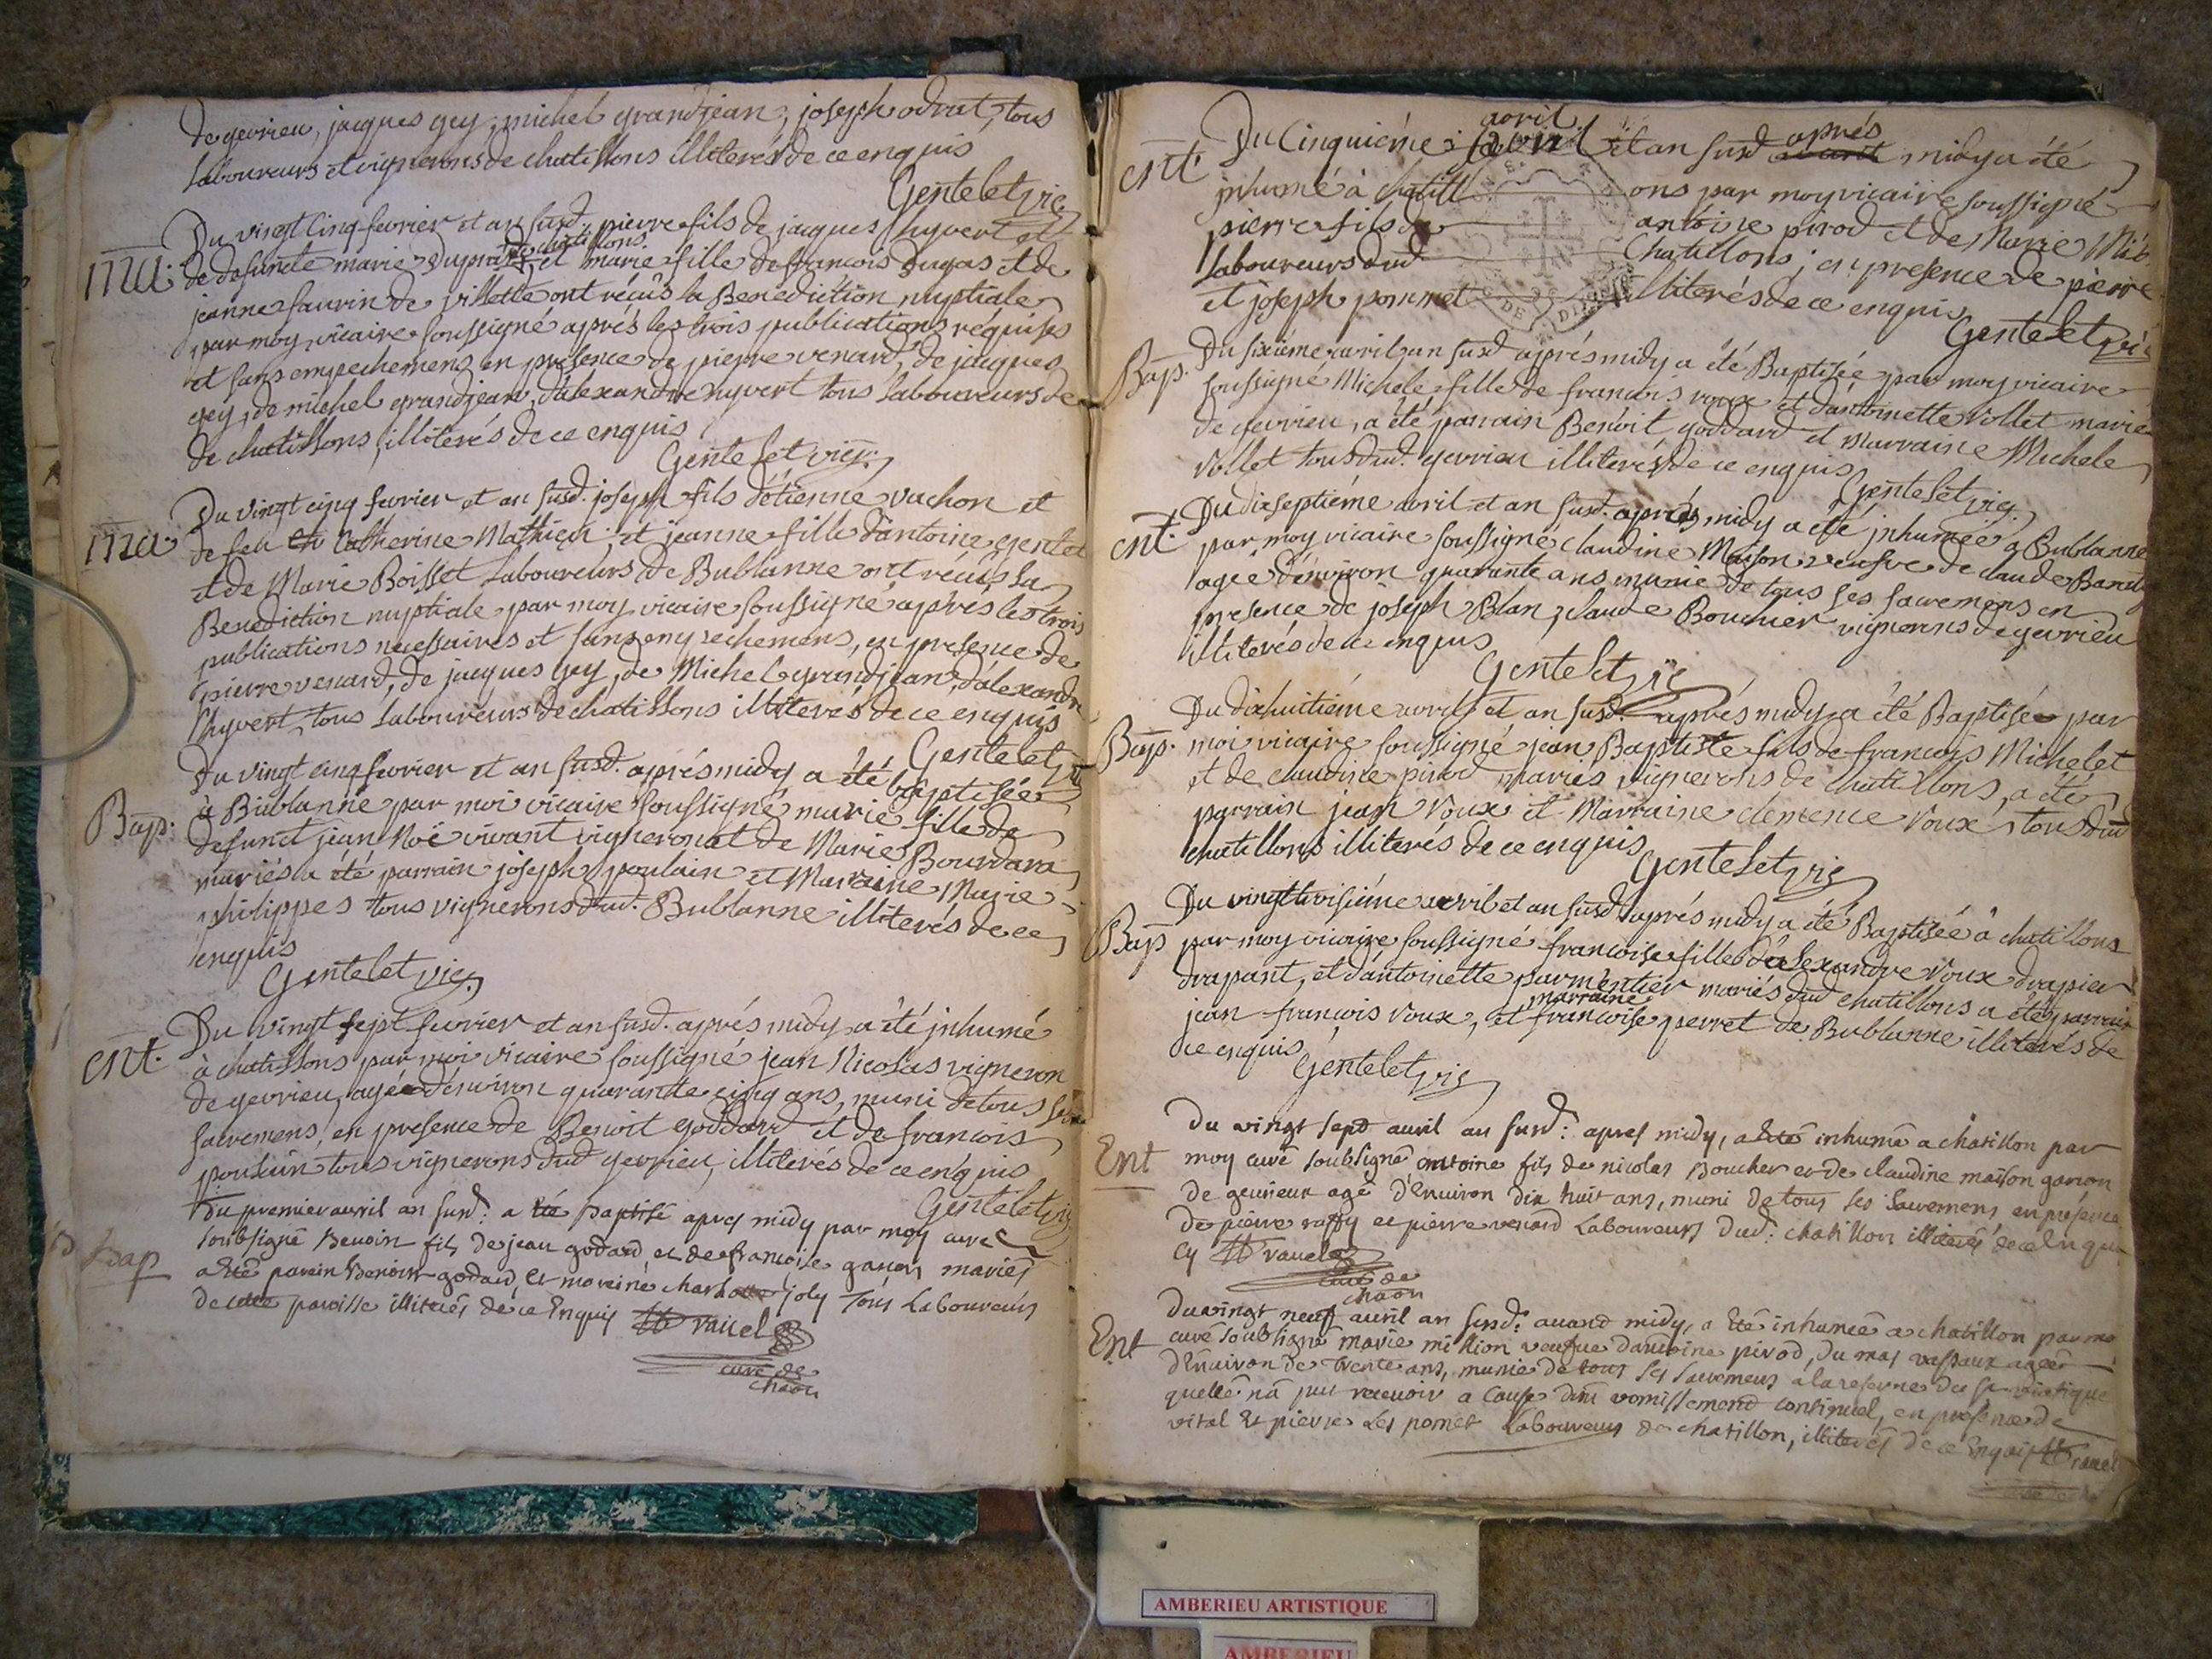 de gevrieu, jacques gey, michel grandjean, joseph odrat, tous
laboureurs et vignerons de chatillons illiterés de ce enquis
Gentelet vic
ma. Du vingt cinq fevrier et an susd. pierre fils de jacques l'hyvert et
de chatillons
de defuncte marie Dupras et marie fille de francois Dugas et de
jeanne faurin de villette ont reçûs la Benediction nuptiale
par moy vicaire soussigné aprés les trois publications réquises
et sans empechemens en presence de pierre venard, de jacques
gey, de michel grandjean, d'alexandre hyvert tous laboureurs de
de chatillons, illiterés de ce enquis
Gentelet vic.
ma Du vingt cinq fevrier et an susd. joseph fils d'étienne vachon et
de feu Catherine Mathieu et jeanne fille d'antoine gentet
et de Marie Boisset laboureurs de Bublanne ont reçûs la
Benediction nuptiale par moy vicaire soussigné aprés les trois
publications necessaires et sans empechemens, en presence de
pierre venard, de jacques gey, de Michel grandjean, d'alexandre
l'hyvert, tous laboureurs de chatillons illiterés de ce enquis
Gentelet
Bap. Du vingt cinq fevrier et an susd. aprés midy a été baptisée
à Bublanne par moi vicaire soussigné marie fille de
defunct jean Noé vivant vigneron et de Marie Bourdara
mariés a été parrain joseph poulain et Marraine Marie
philippes tous vignerons dud. Bublanne illiterés de ce
enquis
Gentelet vic.
ent. Du vingt sept fevrier et an susd. aprés midy a été jnhumé
à chatillons par moi vicaire soussigné jean Nicolas vigneron
de gevrieu, agé d'environ quarante cinq ans, muni de tous ses
sacremens, en presence de Benoit goddard et de francois
poulain tous vignerons dud gevrieu, illiterés de ce enquis
Gentelet vic
Bap Du premier avril an susd: a été baptisé apres midy par moy curé
soubsigné Benoin fils de jean godard et de francoise ganon mariés
a été parein Benoin godard, et mareine charlotte joly tous Laboureurs
de cette paroisse illiterés de ce Enquis ravel
curé de
chaon
avril
ent. Du Cinquiéme avril et an susd aprés midy a été
jnhumé à chatillons par moy vicaire soussigné
pierre fils de antoine pirod et de Marie
laboureurs dud Chatillons, en presence de pierre
et joseph pommet illiterés de ce enquis
Gentelet vic
Bap. Du sixiéme avril an susd aprés midy a été Baptisée par moy vicaire
soussigné Michele fille de francois roux et d'antoinette vollet mariés
de gevrieu, a été parrain Benoit goddard et Marraine Michele
vollet tous dud. gevrieu illiterés de ce enquis
Gentelet vic.
ent. Du dix septiéme avril et an susd. aprés midy a été jnhumée a Bublanne
par moy vicaire soussigné claudine Maison veufve de claude
agée d'environ quarante ans munie de tous ses sacremens en
presence de joseph Blan, claude Bouchier vignerons de gevrieu
illiterés de ce enquis
Gentelet vic
Bap. Du dix huitiéme avril et an susd. aprés midy a été Baptisée par
moi vicaire soussigné jean Baptiste fils de francois Michelet
et de claudine pirod mariés vignerons de chatillons, a été
parrain jean Voux et Marraine clemence Voux, tous dud
chatillons illiterés de ce enquis
Gentelet vic
Bap Du vingt troisiéme avril et an susd aprés midy a été Baptisée à chatillons
par moy vicaire soussigné francoise fille d'alexandre Voux drapier
drapant, et d'antoinette parmentier mariés dud chatillons a été parrain
marraine
jean francois Voux, et francoise perret de Bublanne illiterés de
ce enquis
Gentelet vic
Ent Du vingt sept avril an susd: apres midy, a été inhumé a chatillon par
moy curé soubsigné antoine fils de nicolas Boucher et de claudine maison ganon
de gevrieux agé d'Environ dix huit ans, muni de tous ses sacremens en présence
de pierre raffy et pierre venard Laboureurs dud: chatillon illiterés de ce Enqu
cy ravel
curé de
chaon
Ent Du vingt neuf avril an susd: avand midy, a été inhumée a chatillon par mo
curé soubsigné marie million veufue d'antoine pivod, du mas vassaux agée
d'Environ de trente ans, munie de tous ses sacremens a la reserve du st viatique
quelle na pu recevoir a cause d'un vomissement continuel, en presence de
vital et pierre les pomet Laboureurs de chatillon, illiterés de ce Enquis ravel
AMBERIEU ARTISTIQUE
AMBERIEU